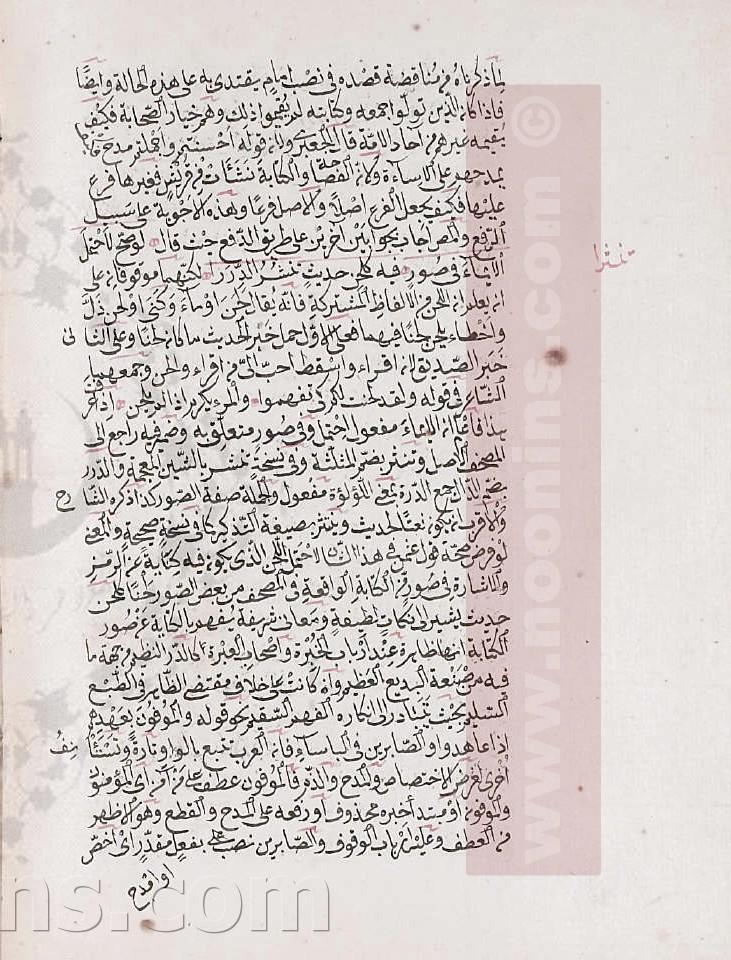 لما ذكرناه من مناقضة قصده في نصب امام يقتدى به على هذه الحالة وايضا
فاذا كان الذين تولوا جمعه وكتابته لم يقيموا ذلك وهم خيار الصحابة فكيف
يقيمه غيرهم من آحاد الامة قال الجعبري ولان قوله احسنتم واجملتم مدح فكيف
يمدحهم على الاساءة ولان الفصاحة والكتابة نشأت من قريش فغيرها فرع
عليها فكيف يجعل الفرع اصلا والاصل فرعا وهذه الاجوبة على سبيل
الرفع والمص اجاب بجوابين آخرين على طريق الدفع حيث قال لو صح لاحتمل
الايماء في صور فيه كلحن حديث تنثر الدررا لكنهما موقوفان على
ان يعلم ان اللحن من الالفاظ المشتركة فانه يقال لحن اوماء وكنى او لحن زل
واخطاء يلحن لحنا فيهما فعلى الاول حمل خبر الحديث ما كان لحنا وعلى الثاني
خبر الصديق لان اقراء واسقط احب الي من اقراء والحن وجمعهما
الشاعر في قوله ولقد لحنت لكم لكي تفهموا والمرء يكره اذ لم يلحن اذا عرفت
هذا فاعلم ان الايماء مفعول احتمل وفي صور متعلق به وضمير فيه راجع الى
المصحف الاصل وتنثر بضم المثلثة وفي نسخة تنشر بالشين المعجمة والدرر
بضم الدال جمع الدرة بمعنى اللؤلؤة مفعول والجملة صفة الصور كذا ذكره الشارح
والاقرب ان يكون نعتا لحديث وينثر بصيغة التذكير كما في نسخة صحيحة والمعنى
لو فرض صحة قول عثمن في هذا الشان لاحتمل اللحن الذي يكون فيه كناية عن الرمز
والاشارة في صور من الكتابة الواقعة في المصحف من بعض الصور لحنا كلحن
حديث يشير الى نكات لطيفة ومعاني شريفة سفهم بالكتابة عن صور
الكتابة انها ظاهرة عند ارباب الخبرة واصحاب العبرة كالدرر النظيم من جهة ما
فيه من صنعة البديع العظيم وان كانت على خلاف مقتضى الظاهر في الطبع
السليم بحيث يتبادر الى انكاره الفهم السقيم نحو قوله والموفون بعهدهم
اذا عاهدوا والصابرين في الباساء فان العرب تتبع بالواو تارة وتستأنف
اخرى لغرض الاختصاص والمدح والذم فالموفون عطف على من آمن اي المؤمنون
والموفون او مبتدأ خبره محذوف او رفعه على المدح والقطع وهو الاظهر
من العطف وعليه ارباب الوقوف والصابرين نصب على بفعل مقدر اي اخص
او امدح
تنثرا
www.noonins.com ©
ns.com